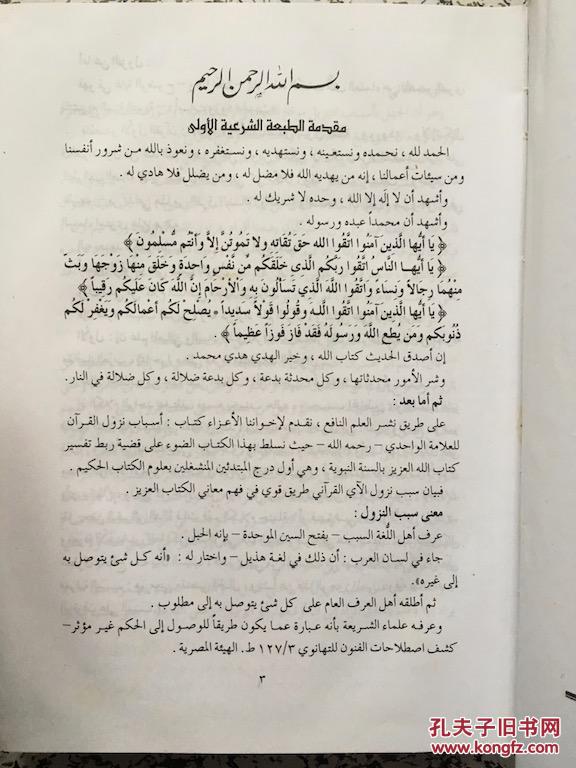 بسم الله الرحمن الرحيم
مقدمة الطبعة الشرعية الأولى
الحمد لله ، نحمده ونستعينه ، ونستهديه ، ونستغفره ، ونعوذ بالله من شرور أنفسنا
ومن سيئات أعمالنا ، إنه من يهديه الله فلا مضل له ، ومن يضلل فلا هادي له .
وأشهد أن لا إله إلا الله ، وحده لا شريك له .
وأشهد أن محمداً عبده ورسوله .
﴿ يَا أَيُّهَا الَّذِينَ آمَنُوا اتَّقُوا الله حَقَّ تُقَاتِهِ ولا تَمُوتُنَّ إِلاَّ وَأَنْتُم مُّسْلِمُونَ ﴾
﴿ يَا أَيُّهَا النَّاسُ اتَّقُوا رَبَّكُم الَّذِى خَلَقَكُم مِّن نَّفْسٍ وَاحِدَةٍ وَخَلَقَ مِنْهَا زَوْجَهَا وَبَثَّ
مِنْهُمَا رِجَالاً وَنِسَاءً وَاتَّقُوا اللَّهَ الَّذِي تَسَاءَلُونَ بِهِ وَالأَرْحَامَ إِنَّ اللَّهَ كَانَ عَلَيْكُم رَقِيباً ﴾
﴿ يَا أَيُّهَا الَّذِينَ آمَنُوا اتَّقُوا اللَّهَ وَقُولُوا قَوْلاً سَدِيداً * يُصلِحْ لَكُم أَعْمَالَكُم وَيَغْفِر لَكُم
ذُنُوبَكُم وَمَن يُطِع اللَّهَ وَرَسُولَهُ فَقَدْ فَازَ فَوزاً عَظِيماً ﴾ .
إن أصدق الحديث كتاب الله ، وخير الهدي هدي محمد .
وشر الأمور محدثاتها ، وكل محدثة بدعة ، وكل بدعة ضلالة ، وكل ضلالة في النار.
ثم أما بعد :
على طريق نشر العلم النافع ، نقدم لإخواننا الأعزاء كتاب : أسباب نزول القرآن
للعلامة الواحدي – رحمه الله – حيث نسلط بهذا الكتاب الضوء على قضية ربط تفسير
كتاب الله العزيز بالسنة النبوية ، وهي أول درج المبتدئين المنشغلين بعلوم الكتاب الحكيم .
فبيان سبب نزول الآي القرآني طريق قوي في فهم معاني الكتاب العزيز .
معنى سبب النزول :
عرف أهل اللُّغة السبب – بفتح السين الموحدة – بإنه الحبل .
جاء في لسان العرب : أن ذلك في لغة هذيل – واختار له : «أنه كل شئ يتوصل به
إلى غيره».
ثم أطلقه أهل العرف العام على كل شئ يتوصل به إلى مطلوب .
وعرفه علماء الشريعة بأنه عبارة عما يكون طريقاً للوصول إلى الحكم غير مؤثر –
كشف اصطلاحات الفنون للتهانوي ٣/ ١٢٧ ط. الهيئة المصرية .
٣
孔夫子旧书网
www.kongfz.com